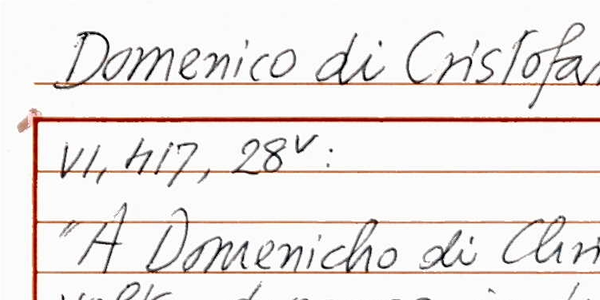 Domenico di Cristofa
VI, 417, 28v:
"A Domenicho di Chri